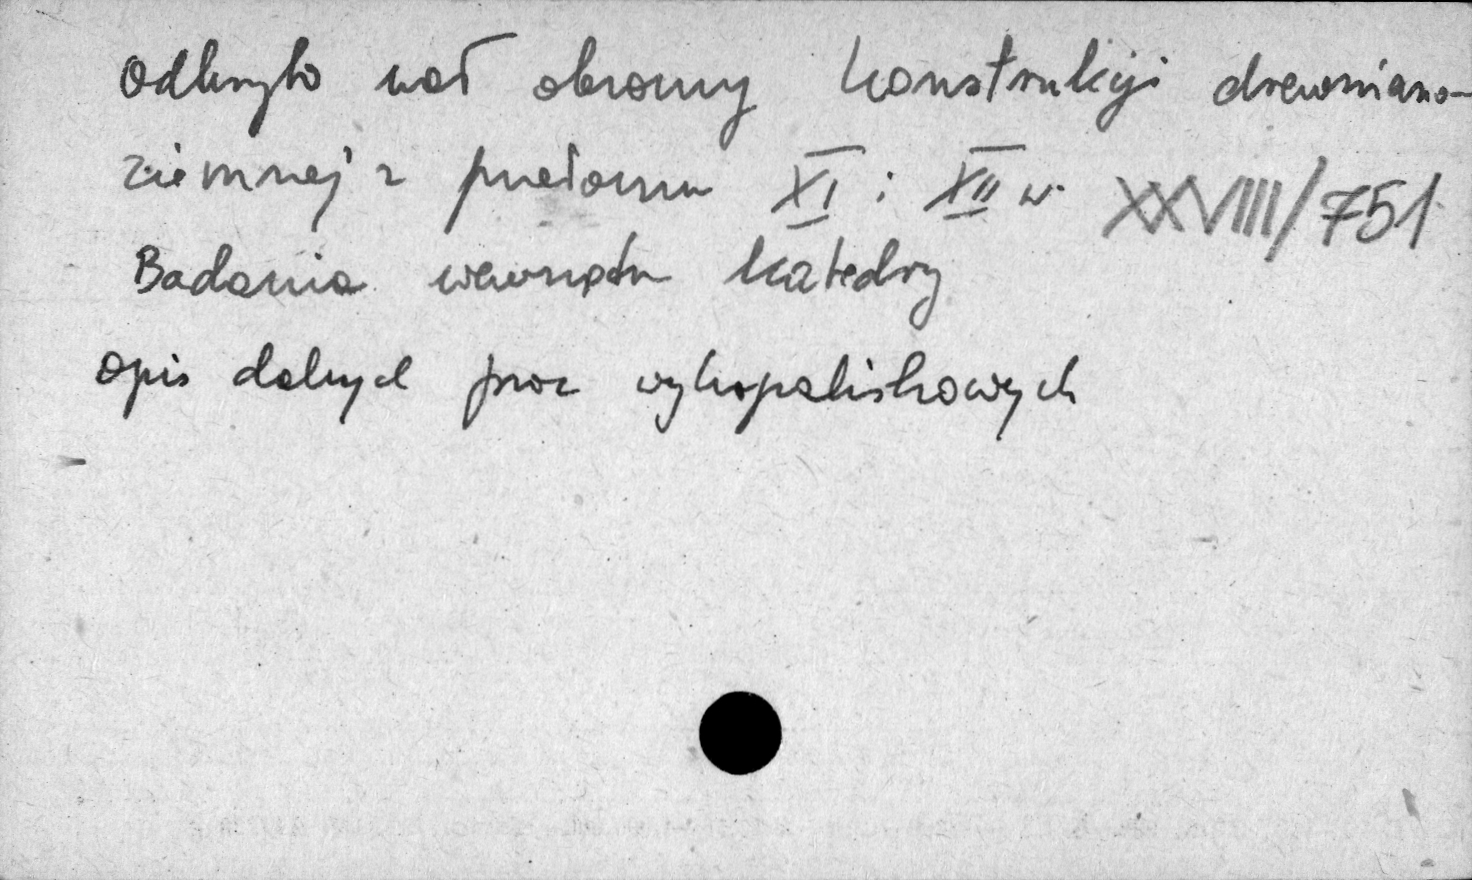 Odkryto wał obronny konstrukcji drewniano-
ziemnej z przełomu XI i XII w. XXVIII/751
Badania wewnątrz katedry
opis dalszych prac wykopaliskowych